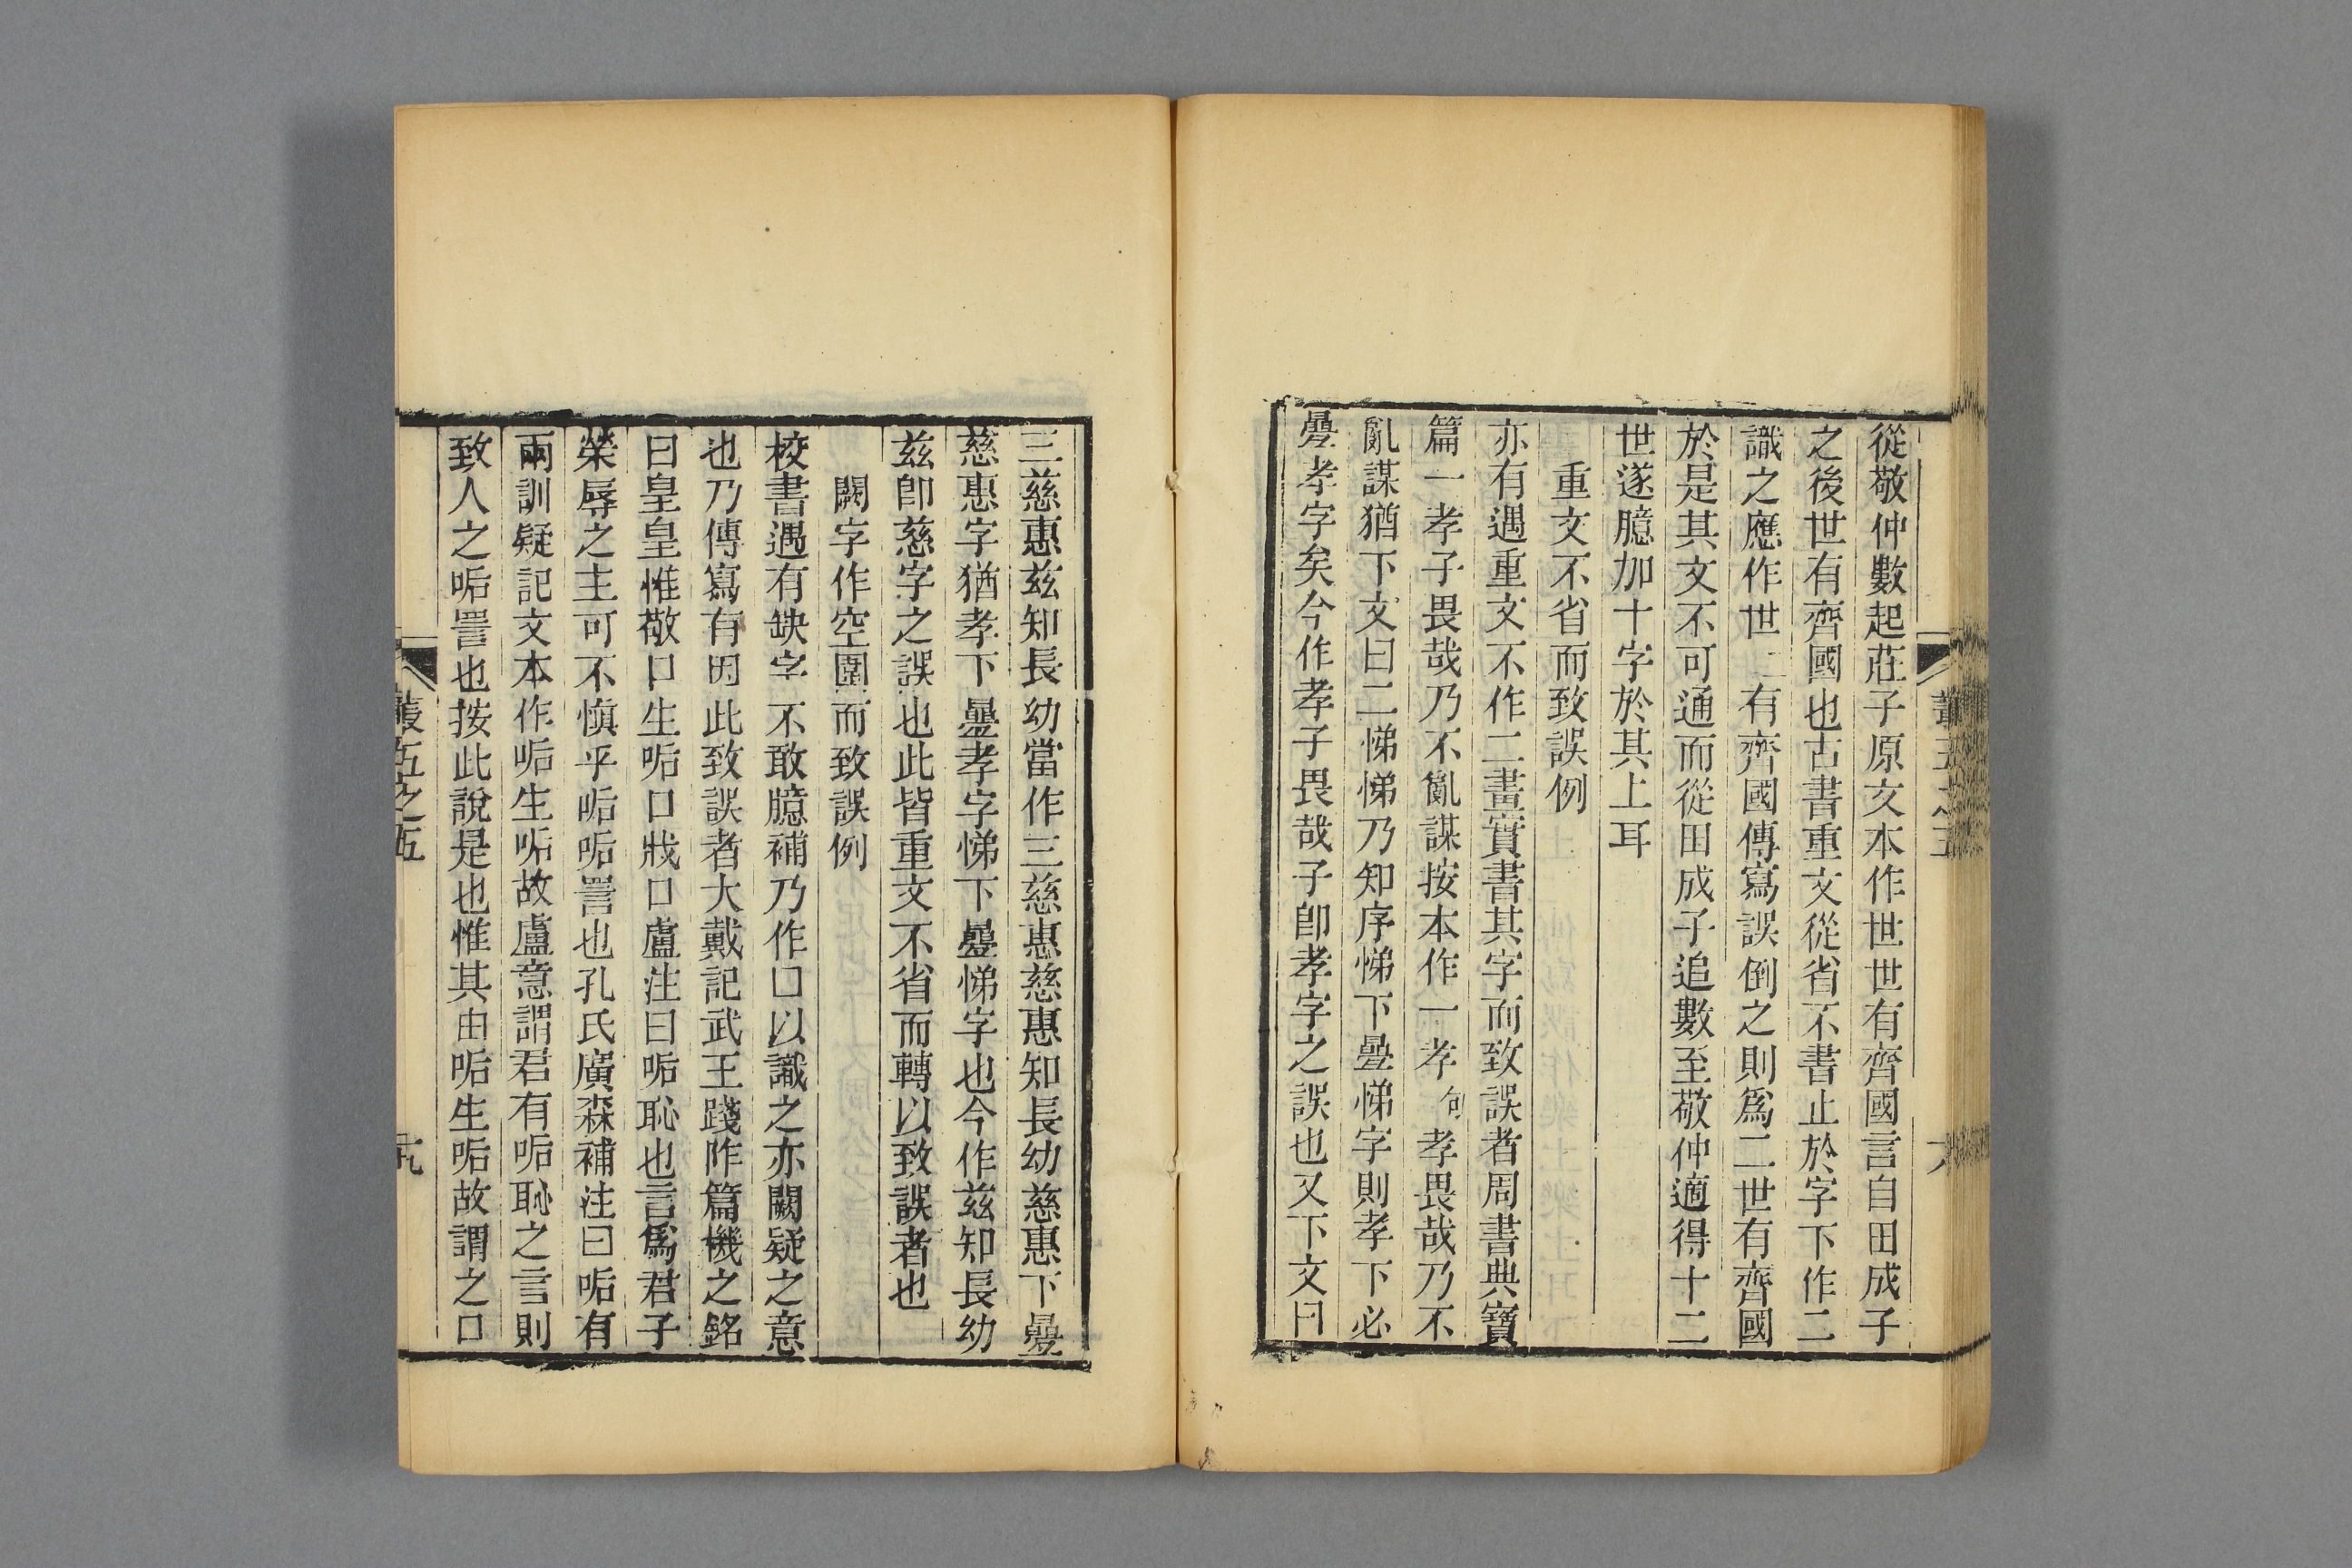 從敬仲數起莊子原文本作世世有齊國言自田成子
之後世有齊國也古書重文從省不書止於字下作二
識之應作世二有齊國傳寫誤倒之則爲二世有齊國
於是其文不可通而從田成子追數至敬仲適得十二
世遂臆加十字於其上耳
重文不省而致誤例
亦有遇重文不作二畫實書其字而致誤者周書典寶
篇一孝子畏哉乃不亂謀按本作一孝句孝畏哉乃不
亂謀猶下文曰二悌悌乃知序悌下疊悌字則孝下必
疊孝字矣今作孝子畏哉子卽孝字之誤也又下文曰
三慈惠茲知長幼當作三慈惠慈惠知長幼慈惠下疊
慈惠字猶孝下疊孝字悌下疊悌字也今作茲知長幼
茲卽慈字之誤也此皆重文不省而轉以致誤者也
闕字作空圍而致誤例
校書遇有缺字不敢臆補乃作囗以識之亦闕疑之意
也乃傳寫有因此致誤者大戴記武王踐阼篇機之銘
曰皇皇惟敬口生㖃口戕口盧注曰㖃恥也言爲君子
榮辱之主可不慎乎㖃㖃詈也孔氏廣森補注曰㖃有
兩訓疑記文本作㖃生㖃故盧意謂君有㖃恥之言則
致人之㖃詈也按此說是也惟其由㖃生㖃故謂之口
叢五之五